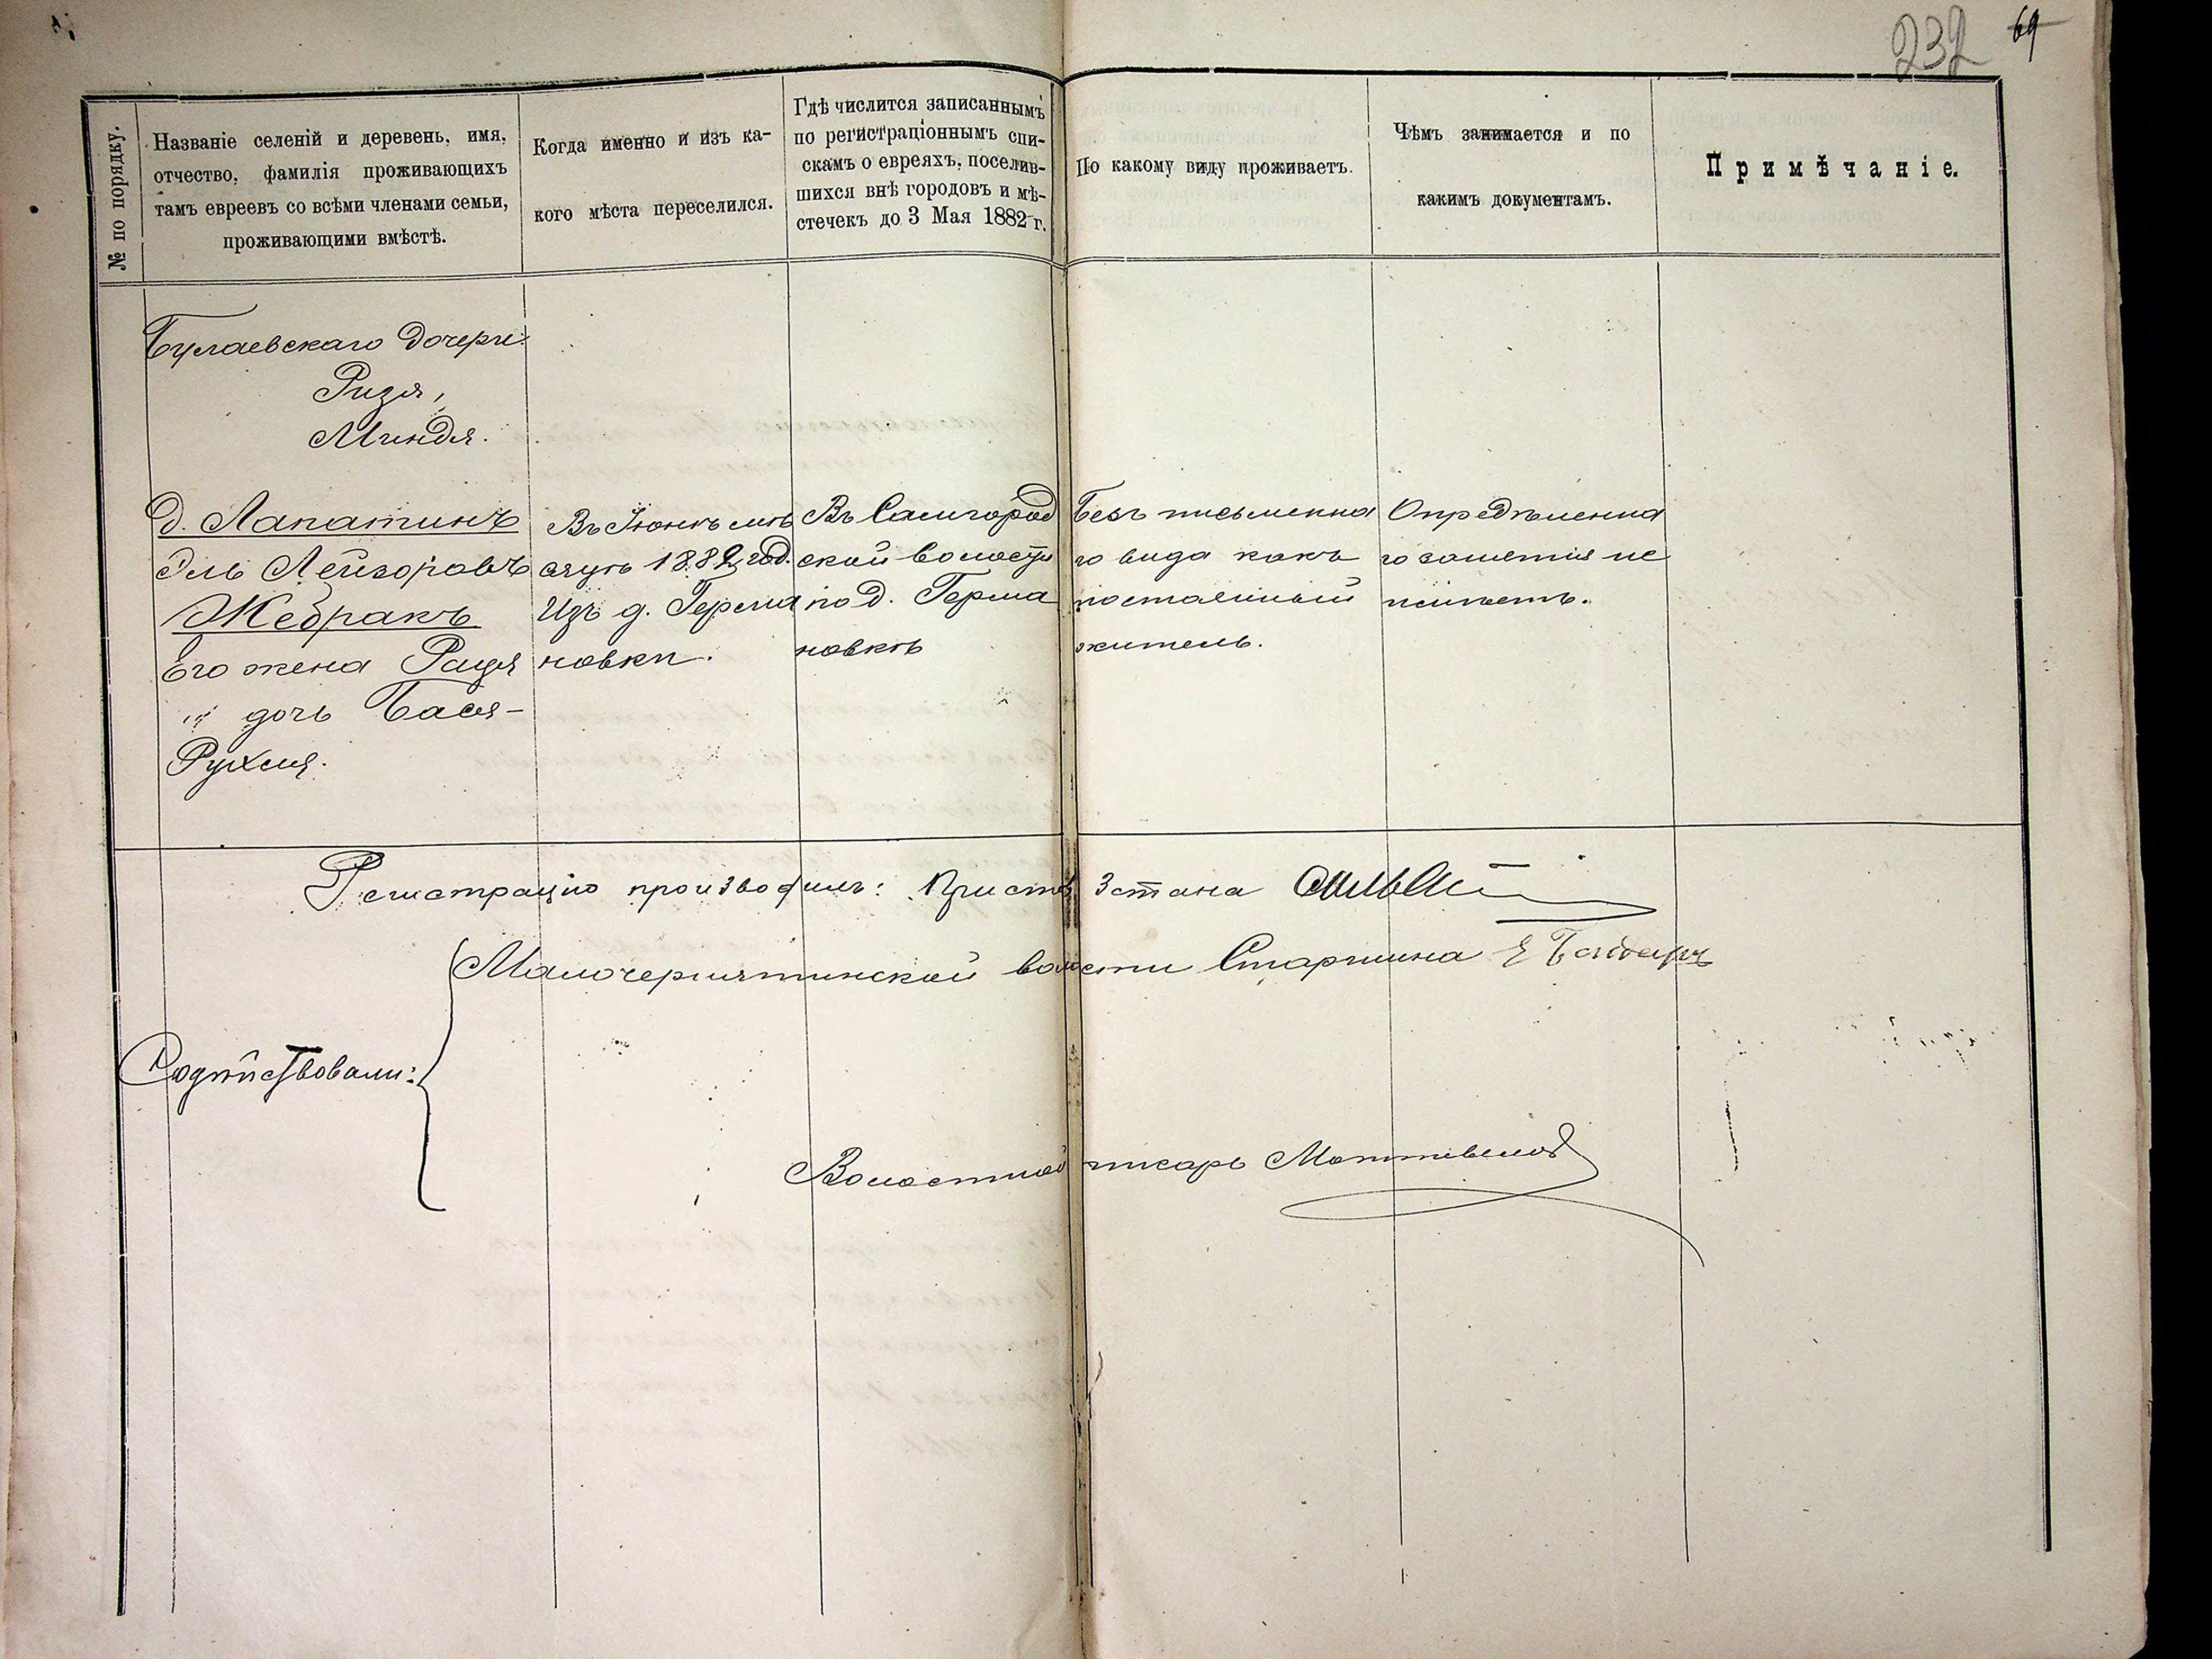 232 69
№ по порядку.
Названіе селеній и деревень, имя,
отчество, фамилія проживающихъ
тамъ евреевъ со всѣми членами семьи,
проживающими вмѣстѣ.
Когда именно и изъ ка-
кого мѣста переселился.
Гдѣ числится записаннымъ
по регистраціоннымъ спи-
скамъ о евреяхъ, поселив-
шихся внѣ городовъ и мѣ-
стечекъ до 3 Мая 1882 г.
По какому виду проживаетъ.
Чѣмъ занимается и по
какимъ документамъ.
Примѣчаніе.
Булаевскаго дочери:
Ризя,
Миндя.
д. Лапатинъ
Эль Лейзоровъ
Жебракъ
Его жена Рация
" дочь Бася-
Рухля.
Въ Іюнѣ мѣ
сяцѣ 1882 год.
Изъ д. Герма
новки.
Въ Самгород
ской волости
по д. Герма
новкѣ
Безъ письменна
го вида какъ
постоянный
житель.
Опредѣленна
го занятія не
имѣетъ.
Регистрацію производилъ: Приставъ 3 стана
Малочернятинской волости Старшина Е Бондарь
Содѣйствовали:
Волостной писарь